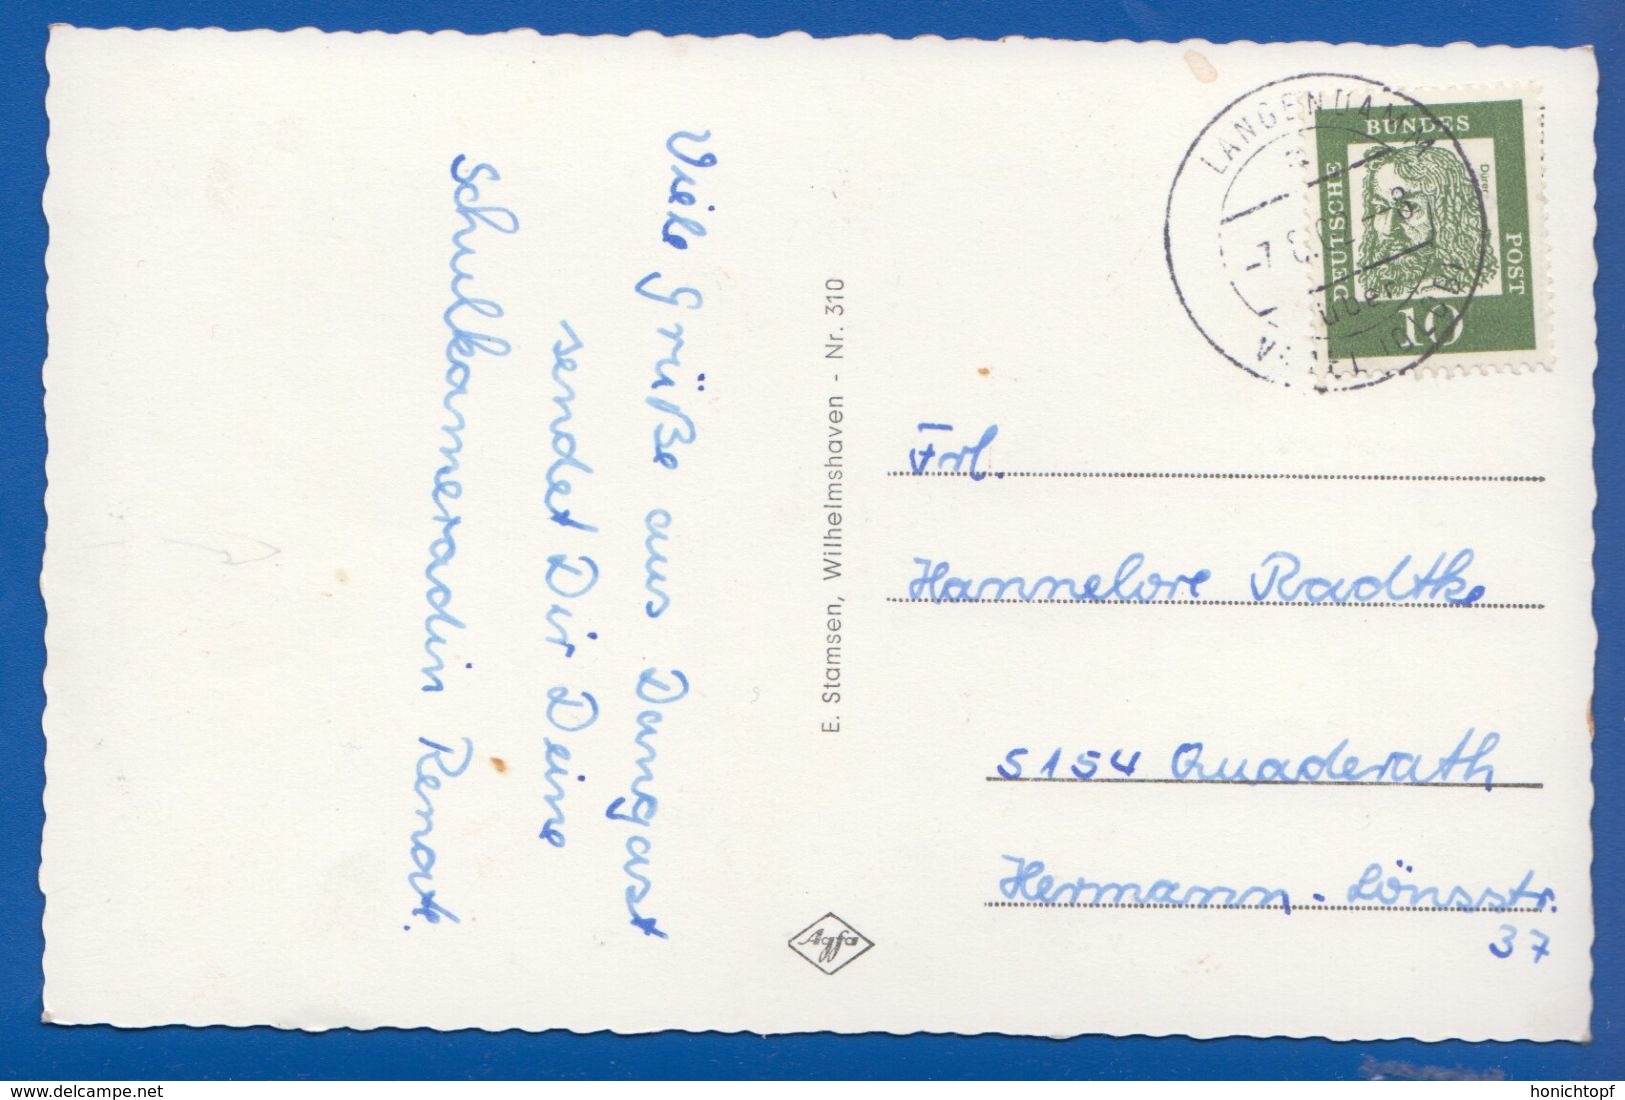 Viele Grüße aus Dangast
sendet Dir Deine
Schulkameradin Renate.
E. Stamsen, Wilhelmshaven - Nr. 310
Agfa
LANGENDAMM
DEUTSCHE
BUNDES
POST
Dürer
10
über
Frl.
Hannelore Radtke
5154 Quaderath
Hermann-Lönsstr.
37
delcampe.net
honichtopf